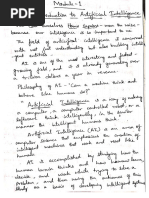 Module-1
Introduction to Artificial Intelligence
We call ourselves Homo Sapiens - man the wise -
because our intelligence is so important to us.
The field of artificial intelligence, it concerned
with not just understanding but also building intelli-
gent entities.
AI is one of the most interesting and fastest
growing fields and it is
trillion dollars a year in revenue.
Philosophy of AI - "Can a machine think and
behave like humans do?"
Artificial Intelligence is a way of making
a computer, a computer-controlled robot, or a
software think intelligently, in the similar
manner the intelligent humans think.
Artificial Intelligence (AI) is a branch of
computer science
intelligent machines that work and react like
humans.
AI is accomplished by studying how the
human brain thinks and how humans learn,
decide, and work while trying to solve a
problem, and then using the outcomes of this
study as a basis of developing intelligent software